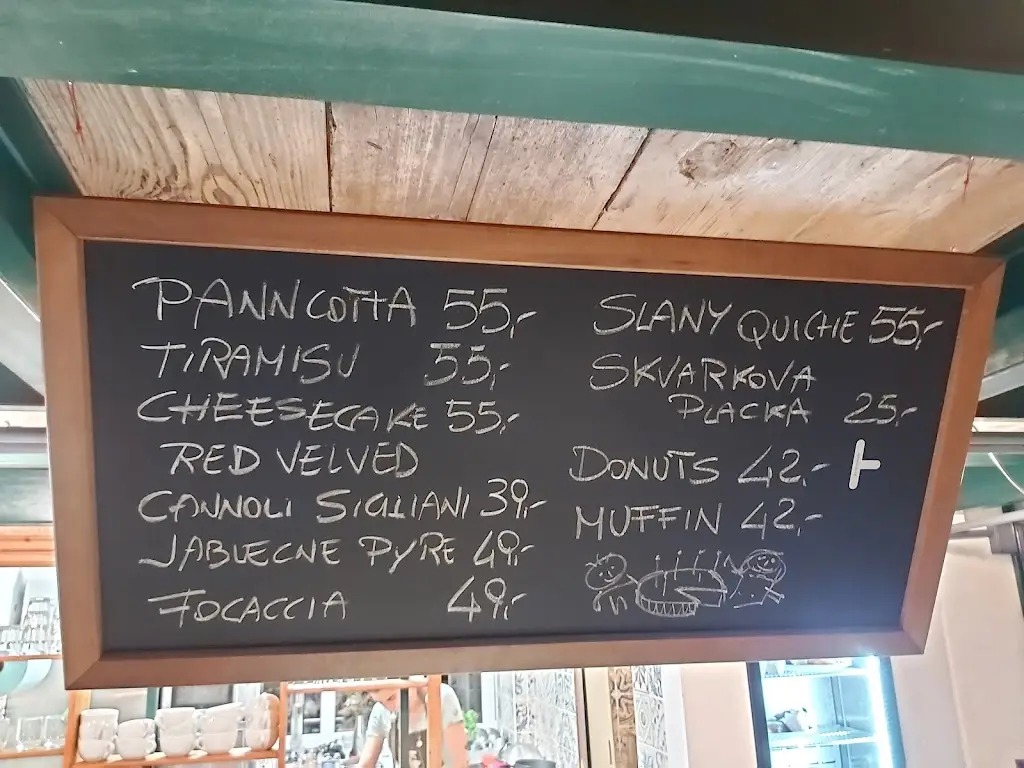 PANNCOTTA 55,-
TIRAMISU 55,-
CHEESECAKE 55,-
RED VELVED
CANNOLI SIGLIANI 39,-
JABLECNE PYRE 49,-
FOCACCIA 49,-
SLANY QUICHE 55,-
SKVARKOVA
PLACKA 25,-
DONUTS 42,-
MUFFIN 42,-